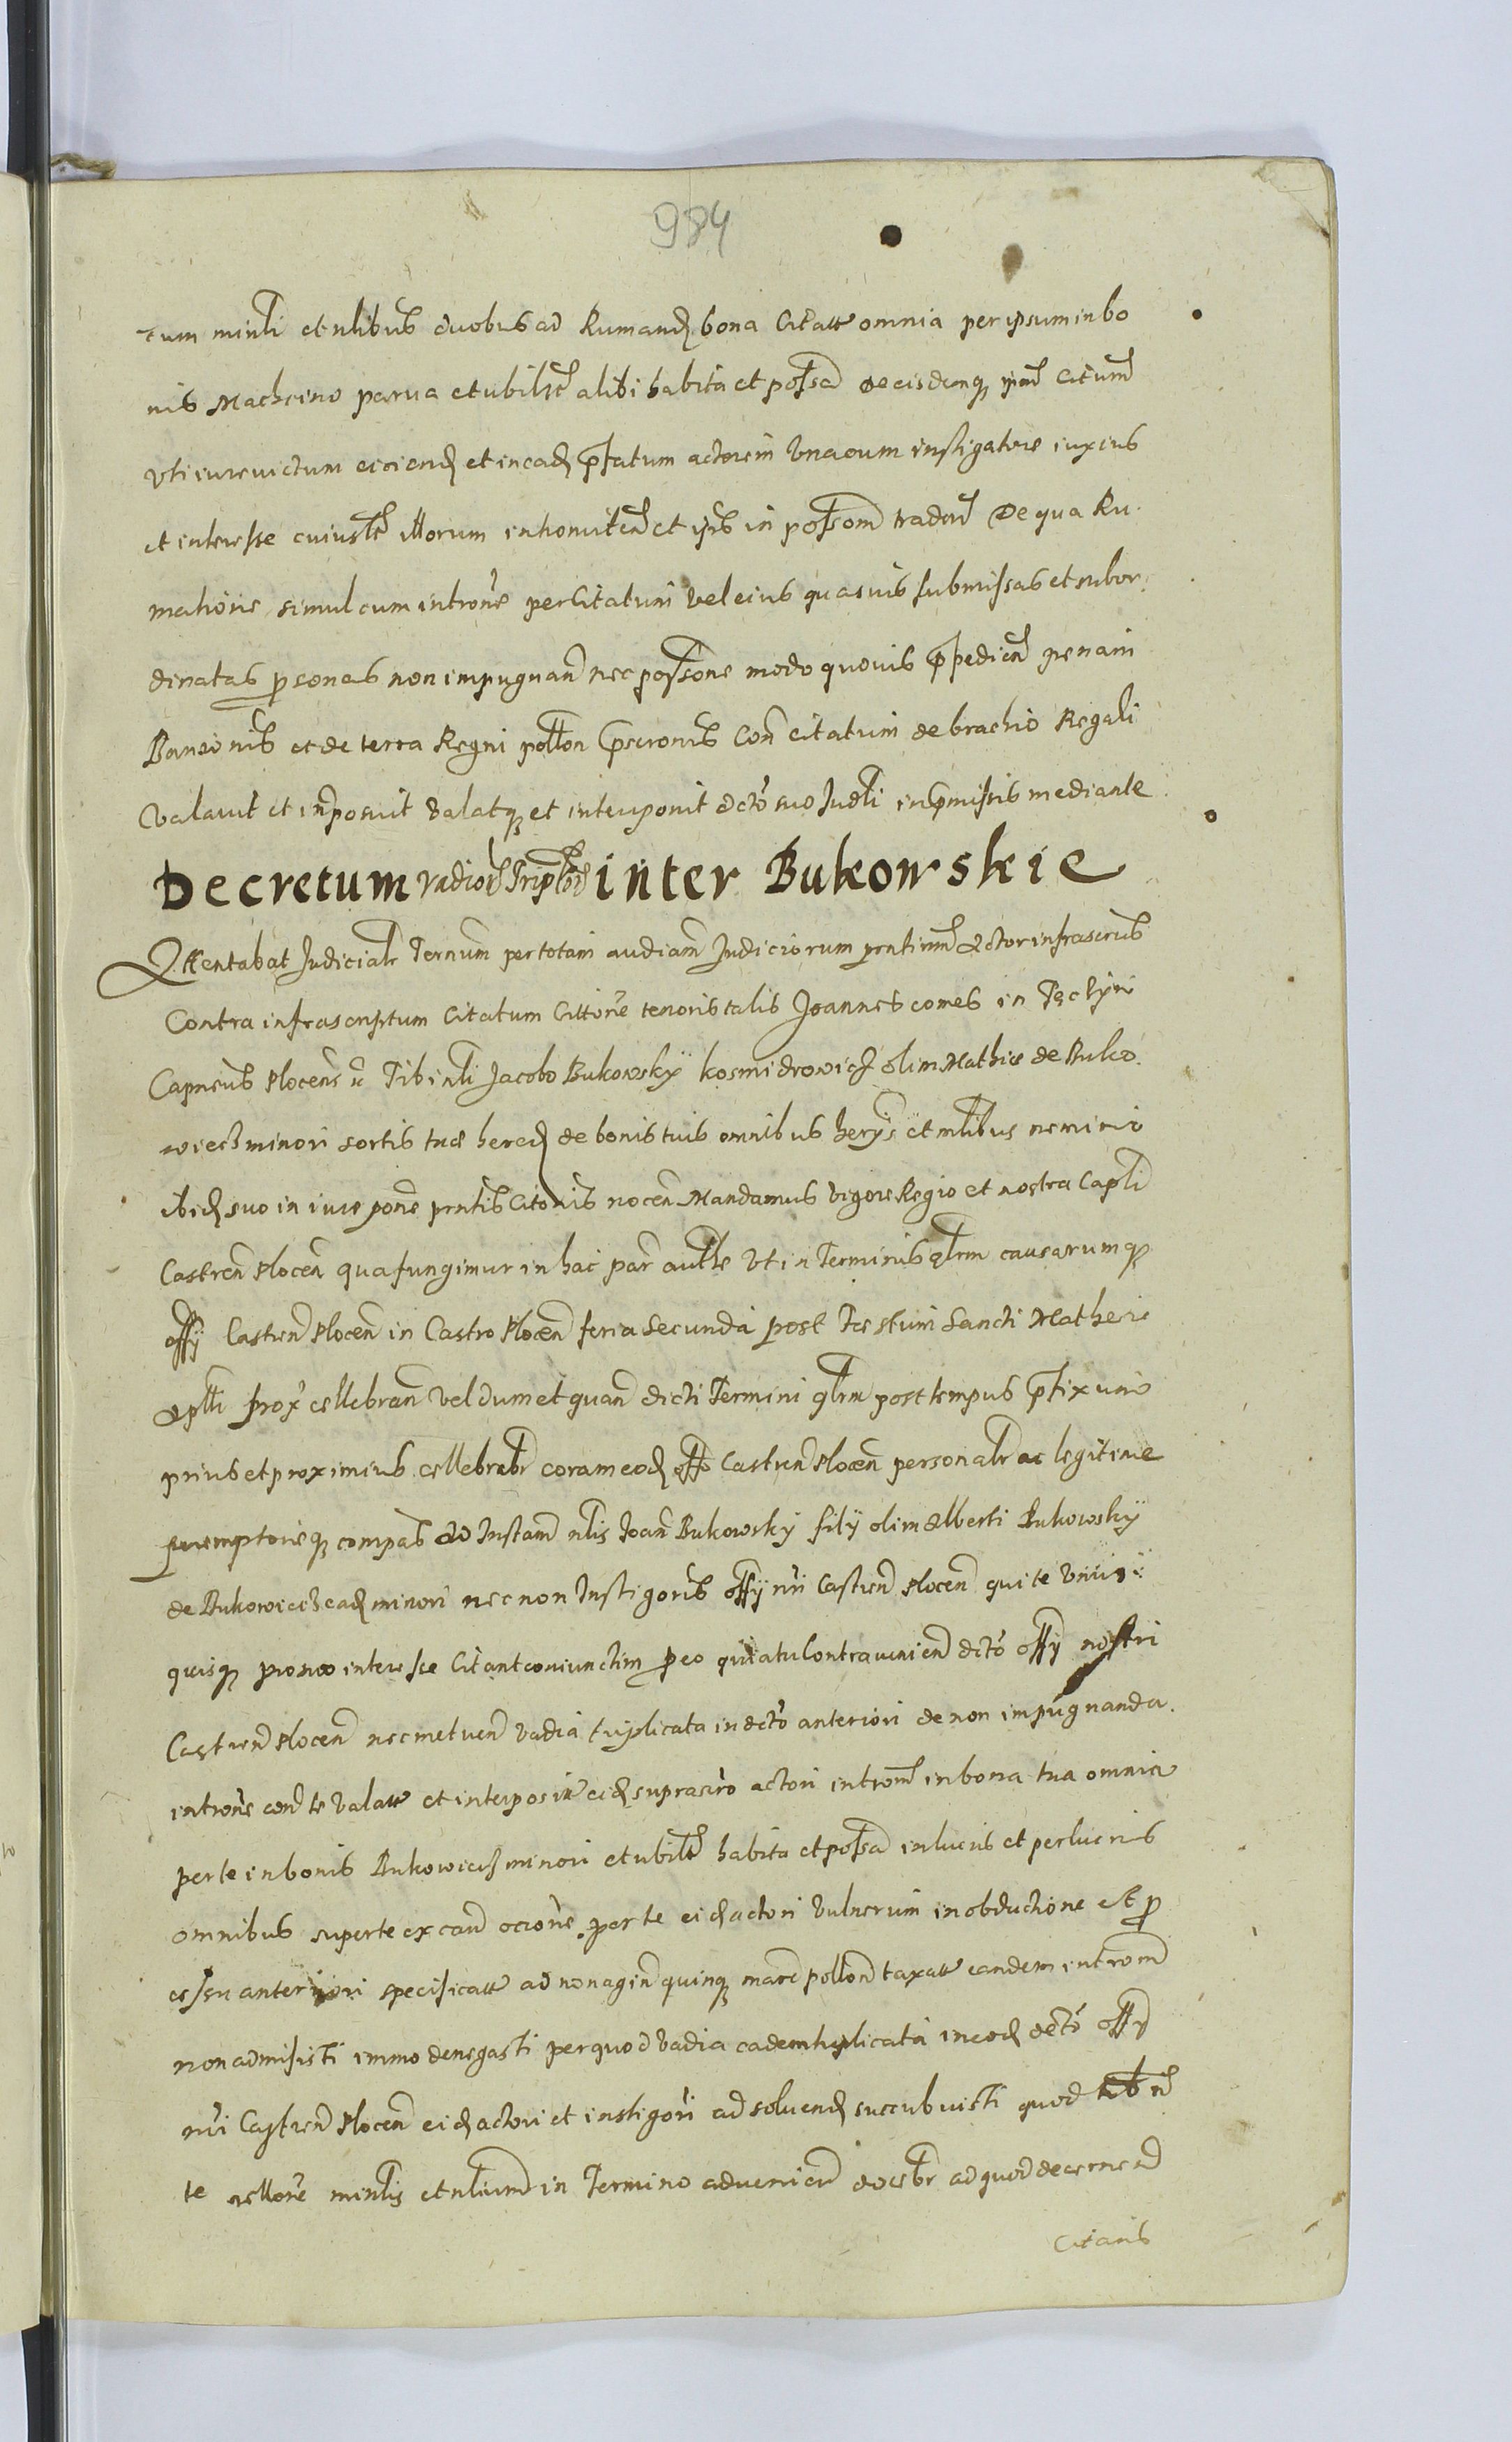 984
tum minli et nlibus duobus ad Rumand bona Citati omnia per ipsum in bo
nis Machcino parva et ubilt alibi habita et possa de eisdemq ipm citum
uti iure victum eiciend et in eadq pfatum actorem unacum instigatore iux eius
et interesse cuiuslt illorum intromitten et ipis in possom tradend De qua Ru
matione simul cum introne per Citatum vel eius quasvis submissas et subor
dinatas psonas non impugnan nec possone modo quovis ppedien penam
Bannonis et de terra Regni pollon pscronis Con citatum de brachio Regali
valavit et inposuit valatq et interponit dcto suo Judli in pmissis mediante
Decretum vadior Triplor inter Bukowskie
Attentabat Judicialr Ternum per totam audiam Judiciorum prntium Actor infrascrus
Contra infrascriptum Citatum Cittone tenoris talis Joannes comes in Tęczyn
Capneus Plocens etc Tibi nli Jacobo Bukowsky kosmidrowicz olim Mathiæ de Buko
wiecz minori sortis tuæ hered de bonis tuis omnibus heryis et mlibus nemini
ibid suo in iure pone prntis Citonis nocen Mandamus vigore Regio et nostra Capli
Castren Plocen qua fungimur in hac par autte Ut in Terminis qlrm causarumq
offy Castren Plocen in Castro Plocen feria secunda post Festum Sancti Mathei
Apli prox cellebran vel dum et quan dicti Termini qlrm post tempus pfixum
prius et proximius cellebrabr coram eod offo Castren Plocen personalr ac legitime
peremptorieq compas Ad Instam nlis Joan Bukowsky fily olim Alberti Bukowsky
de Bukowiecz ead minori nec non Instigoris offy nri Castren Plocen qui te unus
quisq pro suo interesse Citant coniunctim p eo quia tu Contravenien dcto offy nostri
Castren Plocen nec metuen vadia triplicata in dcto anteriori de non impugnanda
introne con te valata et interposita eid suprascro actori introm in bona tua omnia
per te in bonis Bukowiecz minori et ubilt habita et possa in lucris et per lucris
omnibus super te ex cau ocione per te eid actori vulnerum in obductione et p
cessu anteriori specificata ad nonagin quinq marc pollon taxata eandem introm
non admisisti immo denegasti per quod vadia eadem triplicata in eod dcto offy
nri Castren Plocen eid actori et instigori ad solvend succubuisti quod
te rellone minlis et nlium in Termino advenien docebr ad quod decernend
Citaris